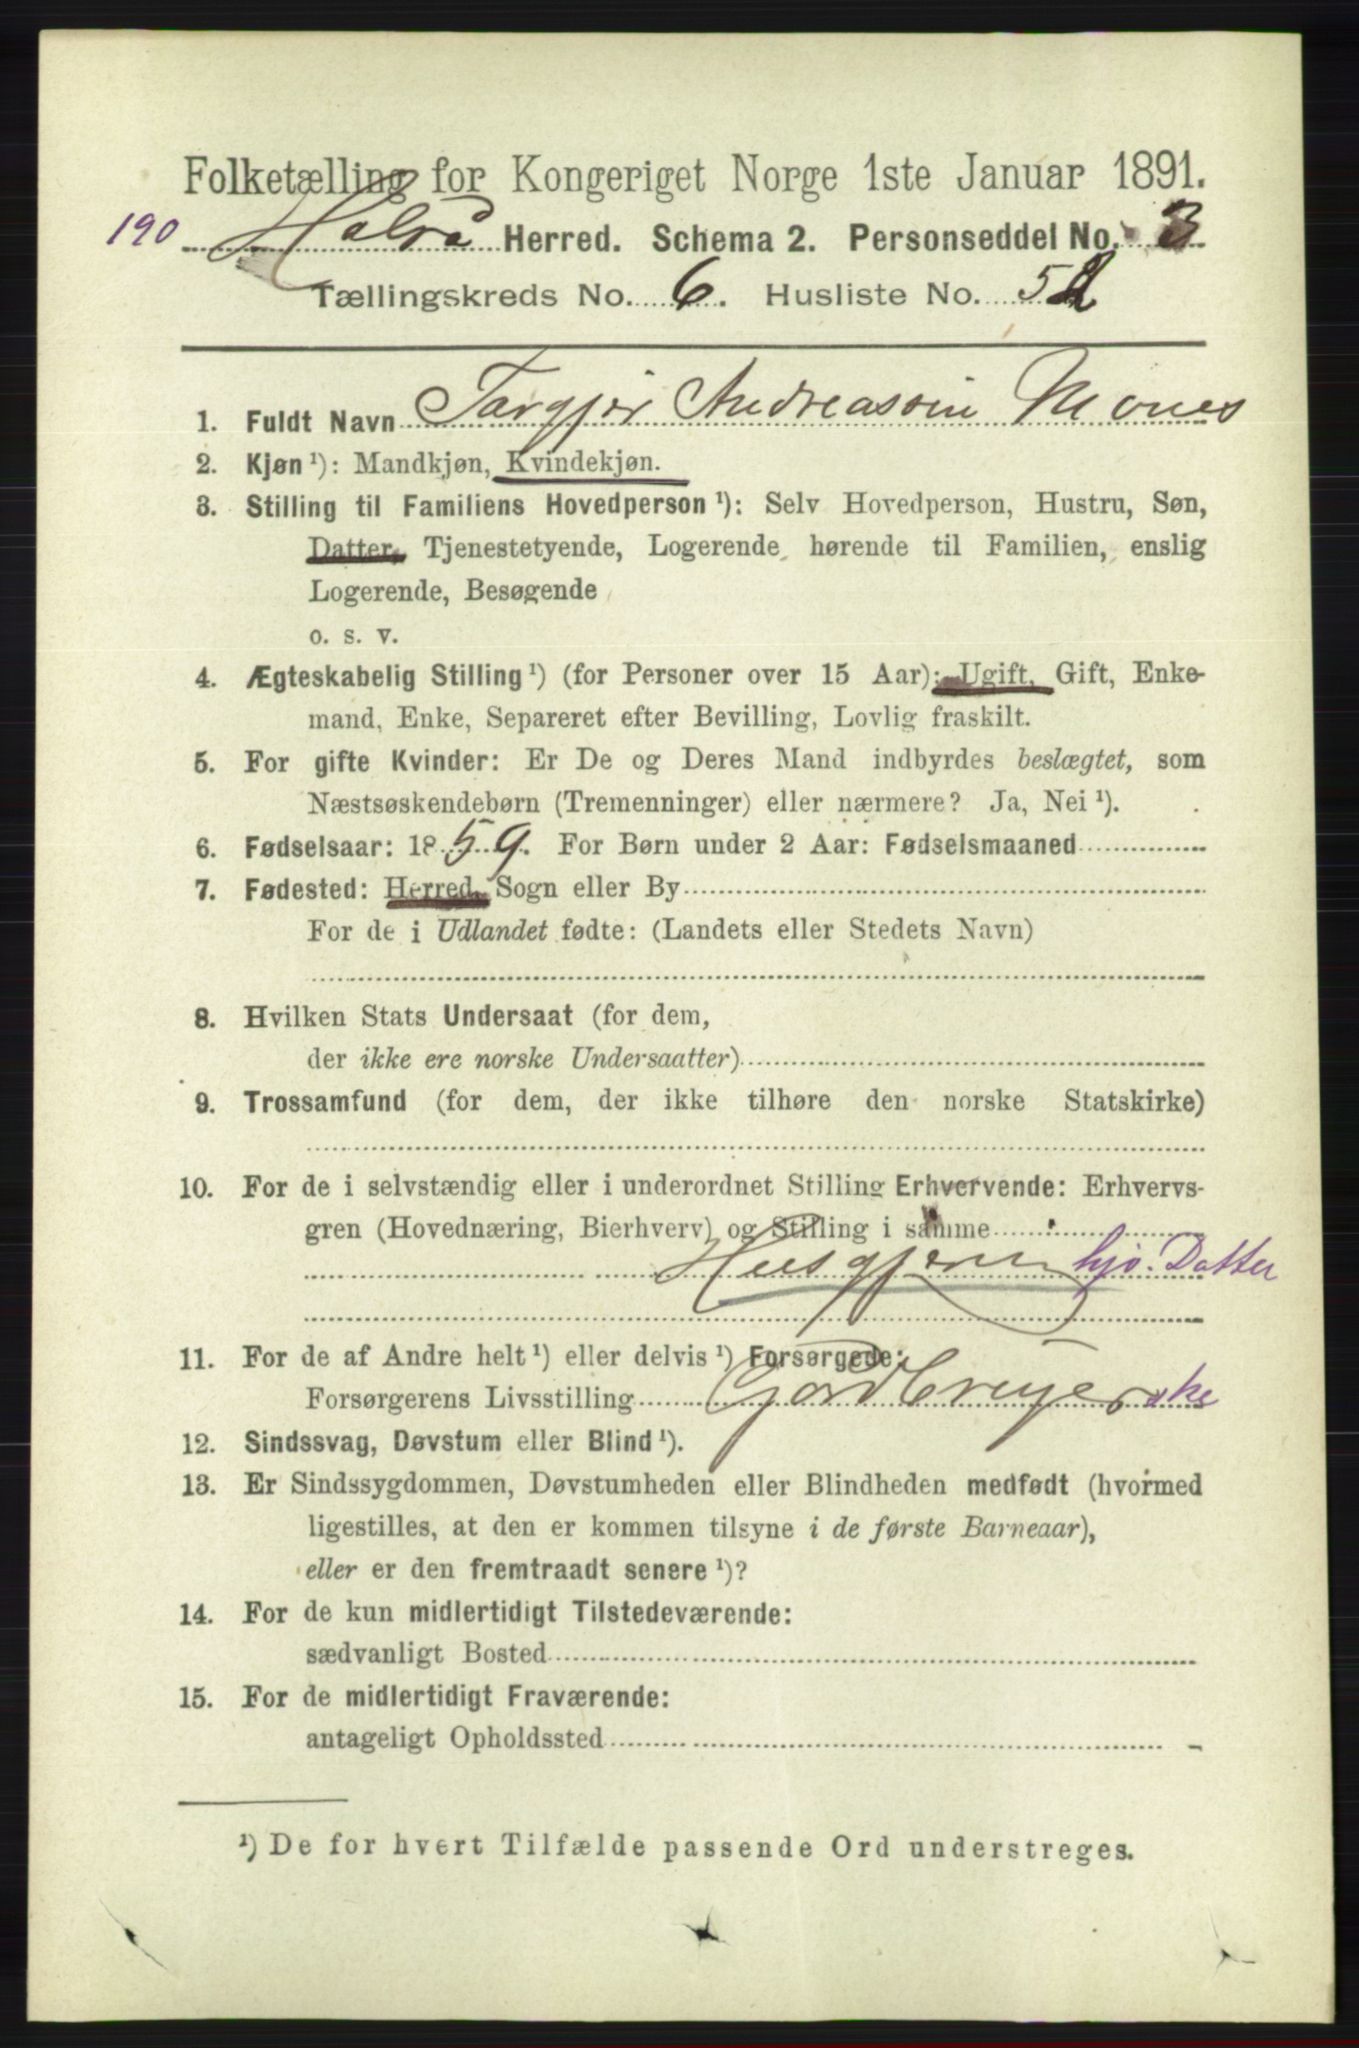 Folketælling for Kongeriget Norge 1ste Januar 1891.
190 Halsaa Herred. Schema 2. Personseddel No. 3
Tællingskreds No. 6. Husliste No. 52
1. Fuldt Navn Torgjer Andreassin Mones
2. Kjøn ¹): Mandkjøn, Kvindekjøn.
3. Stilling til Familiens Hovedperson ¹): Selv Hovedperson, Hustru, Søn,
Datter, Tjenestetyende, Logerende hørende til Familien, enslig
Logerende, Besøgende
o. s. v.
4. Ægteskabelig Stilling ¹) (for Personer over 15 Aar): Ugift, Gift, Enke-
mand, Enke, Separeret efter Bevilling, Lovlig fraskilt.
5. For gifte Kvinder: Er De og Deres Mand indbyrdes beslægtet, som
Næstsøskendebørn (Tremenninger) eller nærmere? Ja, Nei ¹).
6. Fødselsaar: 1859. For Børn under 2 Aar: Fødselsmaaned
7. Fødested: Herred, Sogn eller By
For de i Udlandet fødte: (Landets eller Stedets Navn)
8. Hvilken Stats Undersaat (for dem,
der ikke ere norske Undersaatter)
9. Trossamfund (for dem, der ikke tilhøre den norske Statskirke)
10. For de i selvstændig eller i underordnet Stilling Erhvervende: Erhvervs-
gren (Hovednæring, Bierhverv) og Stilling i samme
Husgjerning hjv. Datter
11. For de af Andre helt ¹) eller delvis ¹) Forsørgede:
Forsørgerens Livsstilling Gordbruger ske
12. Sindssvag, Døvstum eller Blind ¹).
13. Er Sindssygdommen, Døvstumheden eller Blindheden medfødt (hvormed
ligestilles, at den er kommen tilsyne i de første Barneaar),
eller er den fremtraadt senere ¹)?
14. For de kun midlertidigt Tilstedeværende:
sædvanligt Bosted
15. For de midlertidigt Fraværende:
antageligt Opholdssted
¹) De for hvert Tilfælde passende Ord understreges.